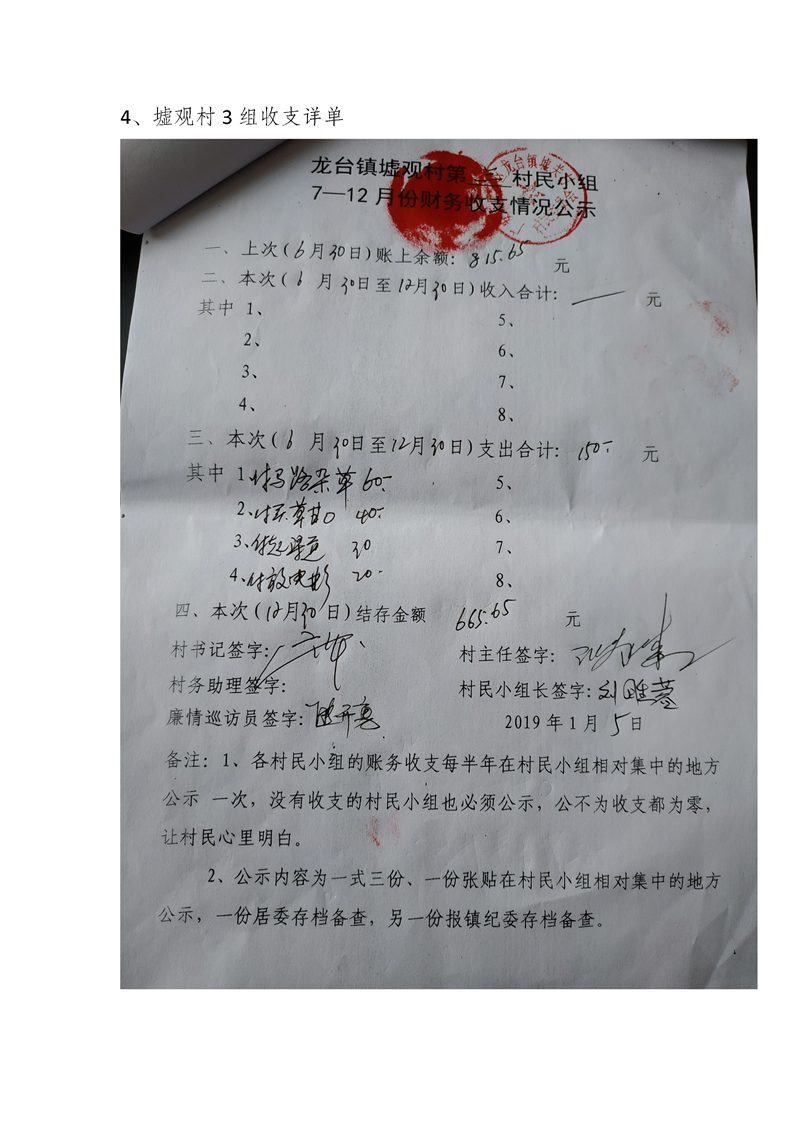 4、墟观村3组收支详单
龙台镇墟观村第三村民小组
7—12月份财务收支情况公示
一、上次(6月30日)账上余额：815.65元
二、本次(6月30日至12月30日)收入合计：—元
其中 1、 5、
2、 6、
3、 7、
4、 8、
三、本次(6月30日至12月30日)支出合计：150-元
其中 1、付马路杂草60- 5、
2、草 40- 6、
3、渠道 30 7、
4、付放电影 20- 8、
四、本次(12月30日)结存金额 665.65元
村书记签字： 村主任签字：
村务助理签字： 村民小组长签字：刘
廉情巡访员签字： 2019年1月5日
备注：1、各村民小组的账务收支每半年在村民小组相对集中的地方
公示 一次，没有收支的村民小组也必须公示，公不为收支都为零，
让村民心里明白。
2、公示内容为一式三份、一份张贴在村民小组相对集中的地方
公示，一份居委存档备查，另一份报镇纪委存档备查。